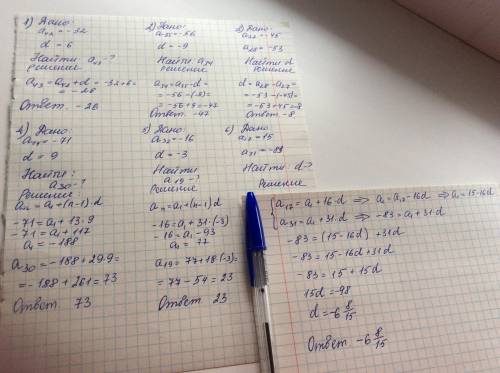 1) Дано:
a₄₂ = -32
d = 6
Найти: a₄₃ - ?
Решение
a₄₃ = a₄₂ + d = -32 + 6 =
= -28
Ответ. -28
2) Дано:
a₃₅ = -56
d = -9
Найти: a₃₄
Решение
a₃₄ = a₃₅ - d =
= -56 - (-9) =
= -56 + 9 = -47
Ответ -47
3) Дано:
a₂₇ = -45
a₂₈ = -53
Найти: d
Решение
d = a₂₈ - a₂₇ =
= -53 - (-45) =
= -53 + 45 = -8
Ответ -8.
4) Дано:
a₁₄ = -71
d = 9
Найти:
a₃₀ - ?
Решение
aₙ = a₁ + (n-1) d
-71 = a₁ + 13·9
-71 = a₁ + 117
a₁ = -188
a₃₀ = -188 + 29·9 =
= -188 + 261 = 73
Ответ 73
5) Дано:
a₃₂ = -16
d = -3
Найти:
a₁₉ - ?
Решение
aₙ = a₁ + (n-1) d
-16 = a₁ + 31·(-3)
-16 = a₁ - 93
a₁ = 77
a₁₉ = 77 + 18·(-3) =
= 77 - 54 = 23
Ответ 23
6) Дано:
a₁₇ = 15
Найти: d - ?
Решение
a₁₇ = a₁ + 16·d ⇒ a₁ = a₁₇ - 16d ⇒ a₁ = 15 - 16d
-83 = a₁ + 31d
-83 = (15 - 16d) + 31d
-83 = 15 - 16d + 31d
-83 = 15 + 15d
15d = -98
d = -6 8/15
Ответ -6 8/15